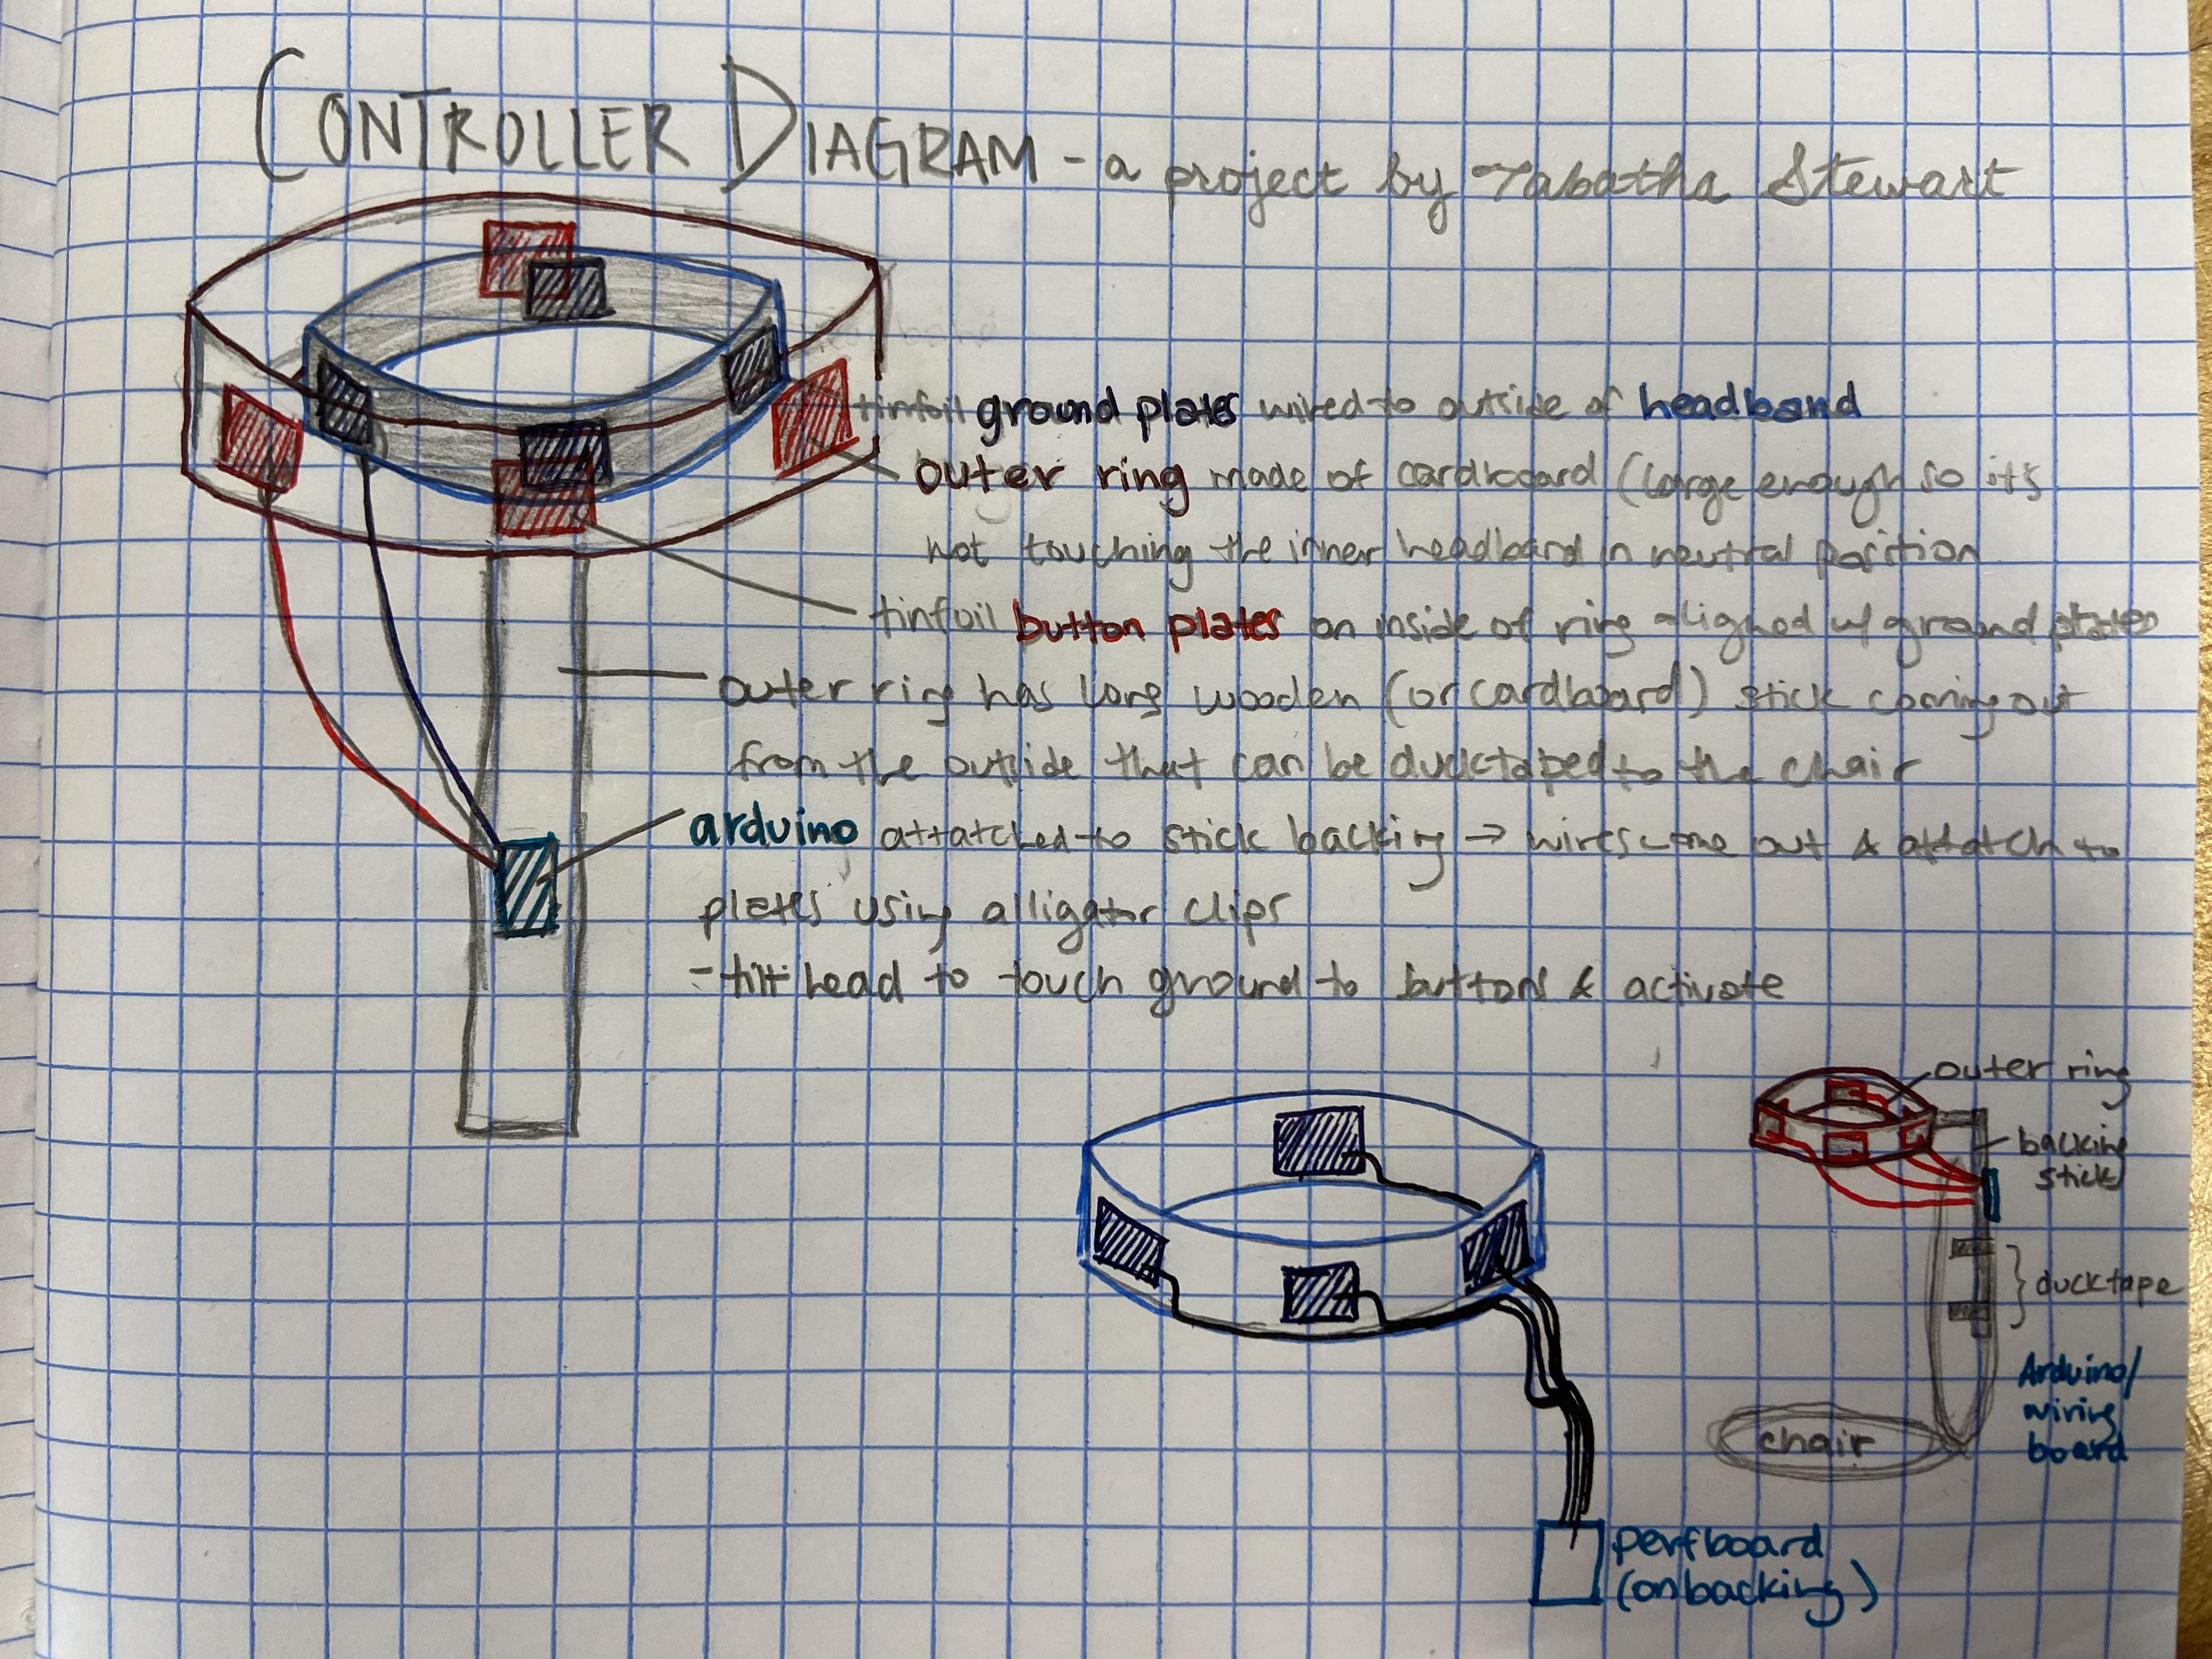 CONTROLLER DIAGRAM - a project by Tabatha Stewart
tinfoil ground plates wired to outside of headband
outer ring made of cardboard (large enough so it's
not touching the inner headband in neutral position
tinfoil button plates on inside of ring aligned w/ ground plates
outer ring has long wooden (or cardboard) stick coming out
from the outside that can be ducktaped to the chair
arduino attatched to stick backing → wires come out & attatch to
plates using alligator clips
- tilt head to touch ground to buttons & activate
outer ring
backing
stick
ducktape
Arduino/
wiring
board
chair
perfboard
(on backing)